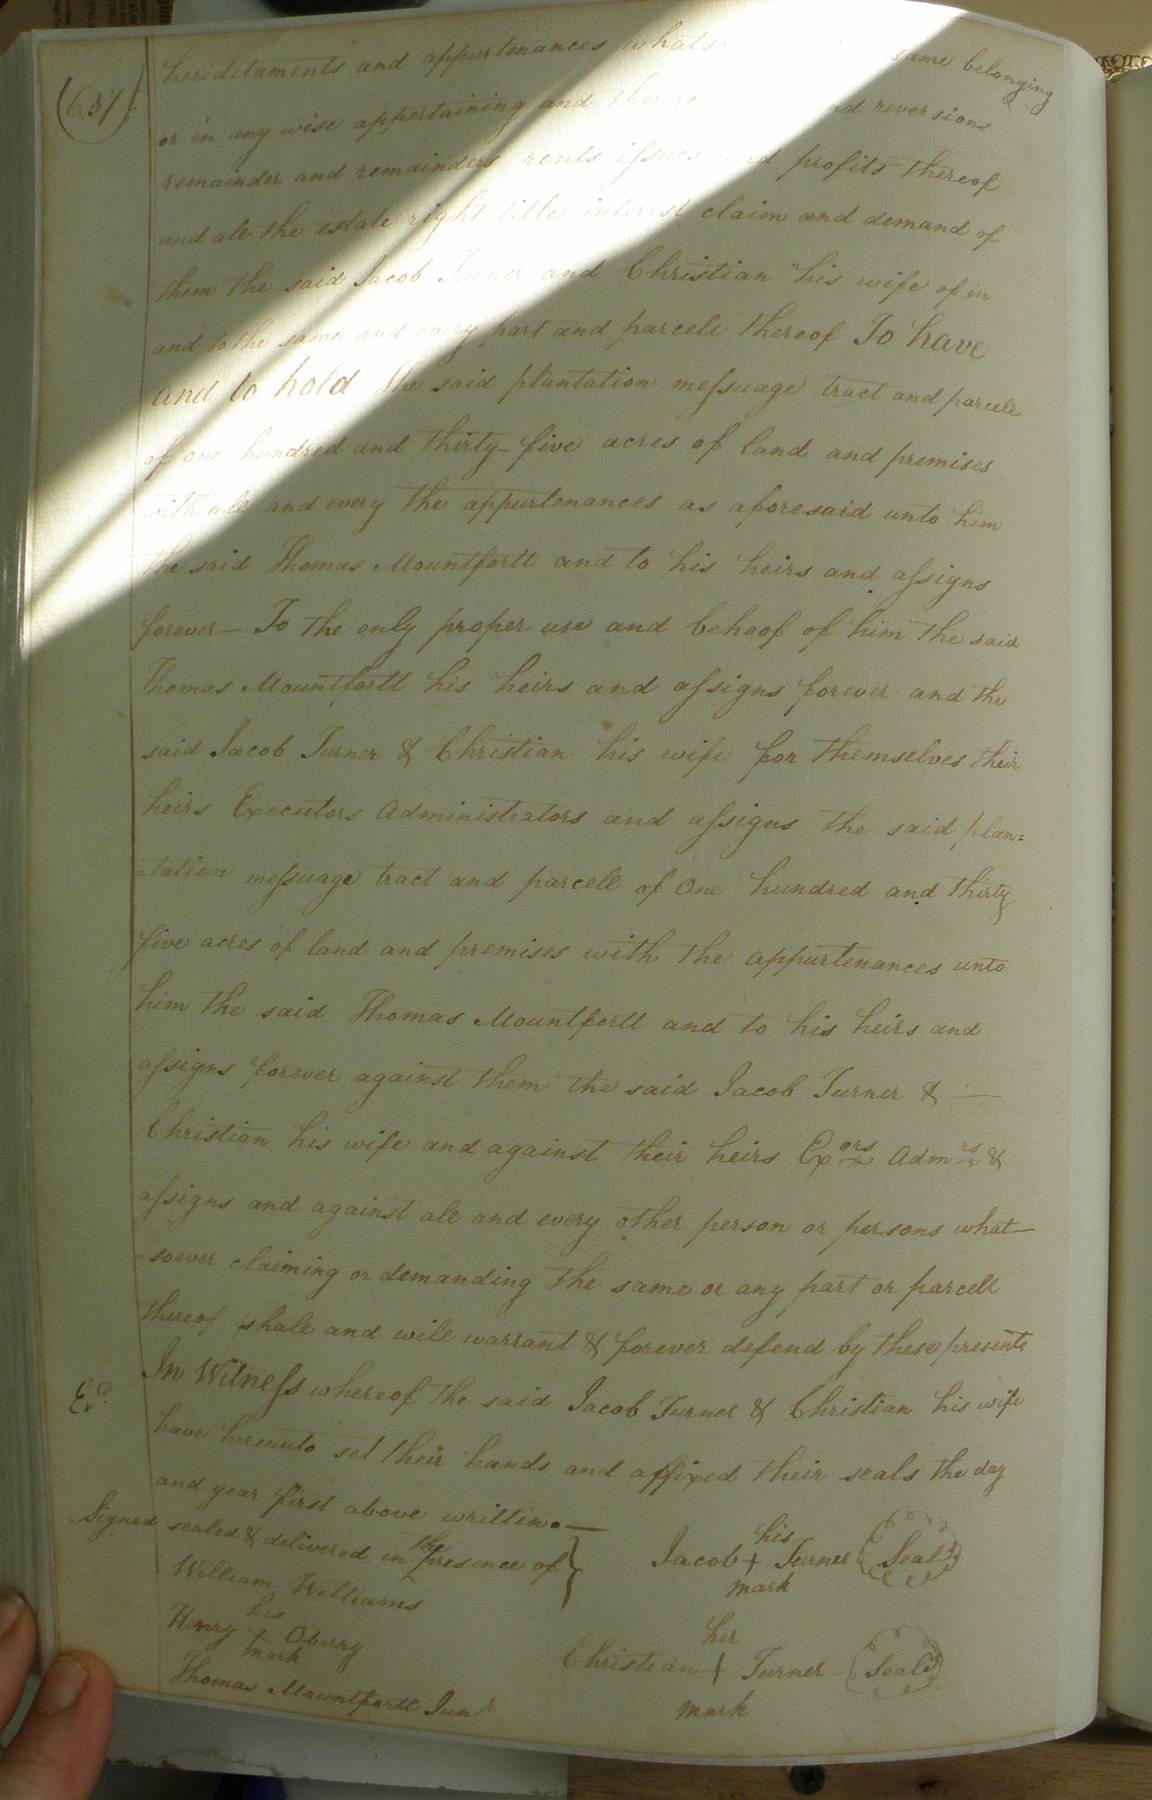 (637)
hereditaments and appurtenances whatso same belonging
or in any wise appertaining and the re and reversions
remainder and remainders rents issues and profits thereof
and all the estate right title interest claim and demand of
them the said Jacob Turner and Christian his wife of in
and to the same and every part and parcele thereof To have
and to hold the said plantation messuage tract and parcele
of one hundred and thirty-five acres of land and premises
with all and every the appurtenances as aforesaid unto him
the said Thomas Mountfortt and to his heirs and assigns
forever— To the only proper use and behoof of him the said
Thomas Mountfortt his heirs and assigns forever and the
said Jacob Turner & Christian his wife for themselves their
heirs Executors Administrators and assigns the said plan=
=tation messuage tract and parcell of One hundred and thirty
five acres of land and premises with the appurtenances unto
him the said Thomas Mountfortt and to his heirs and
assigns forever against them the said Jacob Turner & —
Christian his wife and against their heirs Exors Admrs &
assigns and against all and every other person or persons what—
=soever claiming or demanding the same or any part or parcell
thereof shall and will warrant & forever defend by these presents
In Witness whereof the said Jacob Turner & Christian his wife
Ed.
have hereunto set their hands and affixed their seals the day
and year first above written.—
Signed sealed & delivered in the presence of }
William Williams
his
Henry + Oberry
mark
Thomas Mountfortt Junr
his
Jacob + Turner (Seal)
mark
her
Christian + Turner (Seal)
mark